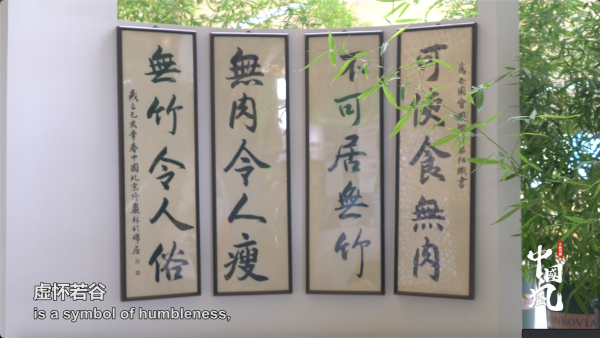 可使食無肉
不可居無竹
無肉令人瘦
無竹令人俗
虚怀若谷
is a symbol of humbleness,
中國風